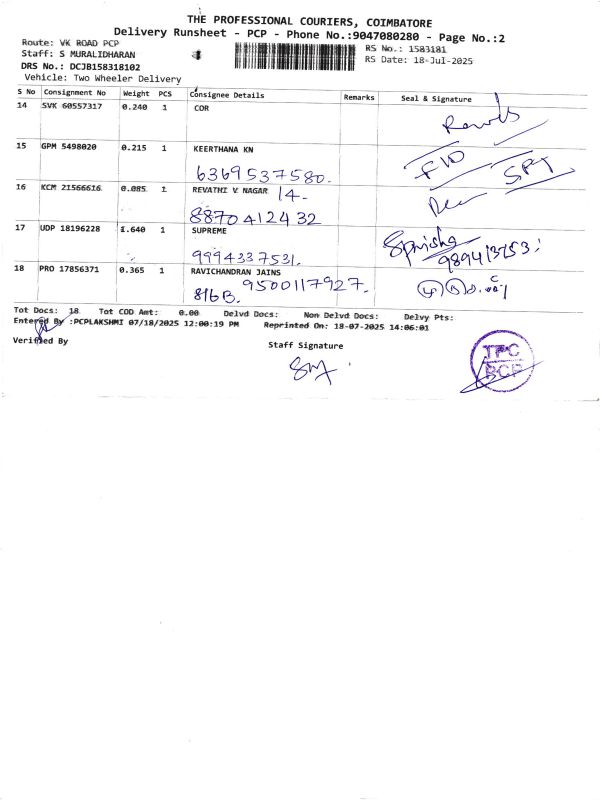 THE PROFESSIONAL COURIERS, COIMBATORE
Delivery Runsheet - PCP - Phone No.:9047080280 - Page No.:2
Route: VK ROAD PCP
Staff: S MURALIDHARAN
DRS No.: DCJB158318102
Vehicle: Two Wheeler Delivery
RS No.: 1583181
RS Date: 18-Jul-2025
S No Consignment No Weight PCS Consignee Details Remarks Seal & Signature
14 SVK 60557317 0.240 1 COR
15 GPM 5498020 0.215 1 KEERTHANA KN
6369537580.
FIO SPT
16 KCM 21566616 0.085 1 REVATHI V NAGAR 14.
8870412432
17 UDP 18196228 1.640 1 SUPREME
9994337531.
9894413753
18 PRO 17856371 0.365 1 RAVICHANDRAN JAINS
816B. 9500117927.
Tot Docs: 18 Tot COD Amt: 0.00 Delvd Docs: Non Delvd Docs: Delvy Pts:
Entered By :PCPLAKSHMI 07/18/2025 12:00:19 PM Reprinted On: 18-07-2025 14:06:01
Verified By
Staff Signature
TPC
PCP